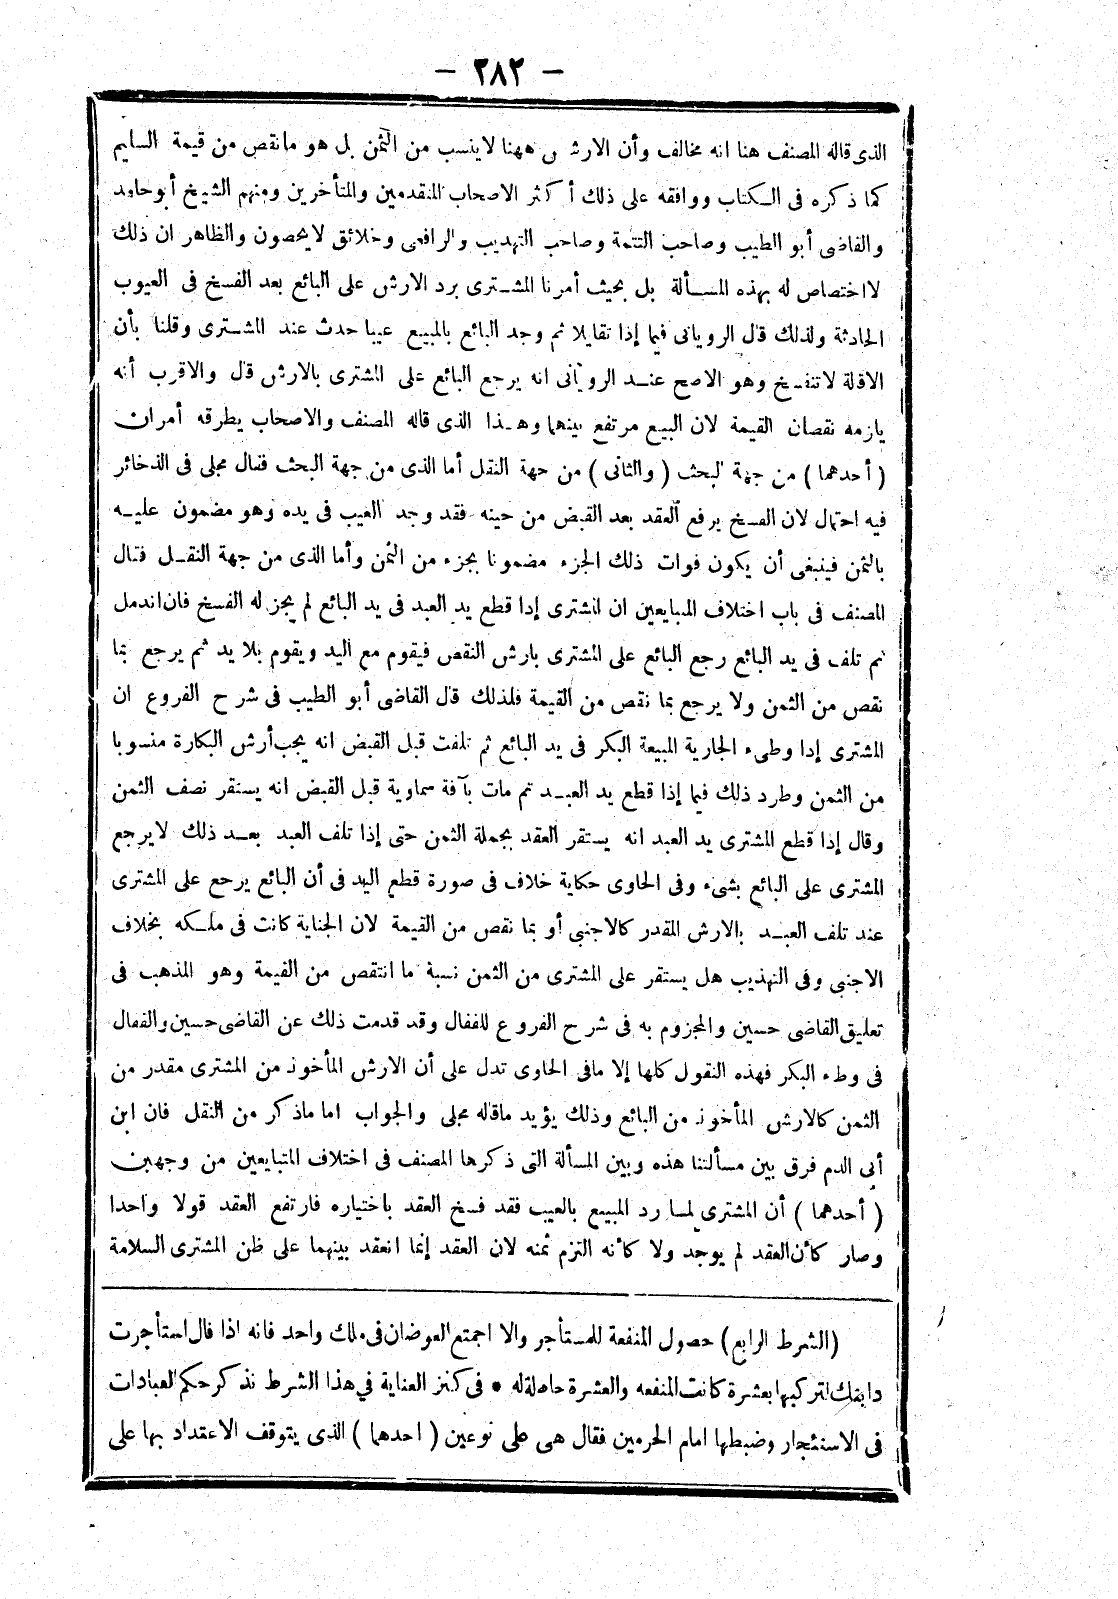 — ٢٨٢ —
الذى قاله المصنف هنا انه مخالف وأن الارش ههنا لا ينسب من الثمن بل هو ما نقص من قيمة السليم
كما ذكره فى الكتاب ووافقه على ذلك أكثر الاصحاب المتقدمين والمتأخرين ومنهم الشيخ أبو حامد
والقاضى أبو الطيب وصاحب التتمة وصاحب التهذيب والرافعى وخلائق لا يحصون والظاهر ان ذلك
لا اختصاص له بهذه المسألة بل بحيث أمرنا المشترى برد الارش على البائع بعد الفسخ فى العيوب
الحادثة ولذلك قال الرويانى فيما إذا تقايلا ثم وجد البائع بالمبيع عيبا حدث عند المشترى وقلنا بأن
الاقالة لا تنفسخ وهو الاصح عند الرويانى انه يرجع البائع على المشترى بالارش قال والاقرب أنه
يلزمه نقصان القيمة لان البيع مرتفع بينهما وهذا الذى قاله المصنف والاصحاب يطرقه أمران
( أحدهما ) من جهة البحث ( والثانى ) من جهة النقل أما الذى من جهة البحث فقال مجلى فى الذخائر
فيه احتمال لان الفسخ يرفع العقد بعد القبض من حينه فقد وجد العيب فى يده وهو مضمون عليه
بالثمن فينبغى أن يكون فوات ذلك الجزء مضمونا بجزء من الثمن وأما الذى من جهة النقل فقال
المصنف فى باب اختلاف المتبايعين ان المشترى إذا قطع يد العبد فى يد البائع لم يجز له الفسخ فان اندمل
ثم تلف فى يد البائع رجع البائع على المشترى بارش النقص فيقوم مع اليد ويقوم بلا يد ثم يرجع بما
نقص من الثمن ولا يرجع بما نقص من القيمة فلذلك قال القاضى أبو الطيب فى شرح الفروع ان
المشترى إذا وطىء الجارية المبيعة البكر فى يد البائع ثم تلفت قبل القبض انه يجب أرش البكارة منسوبا
من الثمن وطرد ذلك فيما إذا قطع يد العبد ثم مات بآفة سماوية قبل القبض انه يستقر نصف الثمن
وقال إذا قطع المشترى يد العبد انه يستقر العقد بجملة الثمن حتى إذا تلف العبد بعد ذلك لا يرجع
المشترى على البائع بشىء وفى الحاوى حكاية خلاف فى صورة قطع اليد فى أن البائع يرجع على المشترى
عند تلف العبد بالارش المقدر كالاجنبى أو بما نقص من القيمة لان الجناية كانت فى ملكه بخلاف
الاجنبى وفى التهذيب هل يستقر على المشترى من الثمن نسبة ما انتقص من القيمة وهو المذهب فى
تعليق القاضى حسين والمجزوم به فى شرح الفروع للقفال وقد قدمت ذلك عن القاضى حسين والقفال
فى وطء البكر فهذه النقول كلها إلا مافى الحاوى تدل على أن الارش المأخوذ من المشترى مقدر من
الثمن كالارش المأخوذ من البائع وذلك يؤيد ماقاله مجلى والجواب اما ماذكر من النقل فان ابن
أبى الدم فرق بين مسألتنا هذه وبين المسألة التى ذكرها المصنف فى اختلاف المتبايعين من وجهين
( أحدهما ) أن المشترى لما رد المبيع بالعيب فقد فسخ العقد باختياره فارتفع العقد قولا واحدا
وصار كأن العقد لم يوجد ولا كأنه التزم ثمنه لان العقد إنما انعقد بينهما على ظن المشترى السلامة
(الشرط الرابع) حصول المنفعة للمستأجر والا اجتمع العوضان فى ملك واحد فانه اذا قال استأجرت
دابتك لتركبها بعشرة كانت المنفعه والعشرة حاصلة له * فى كنز العناية في هذا الشرط نذكر حكم العبادات
فى الاستئجار وضبطها امام الحرمين فقال هى على نوعين ( احدهما ) الذى يتوقف الاعتداد بها على